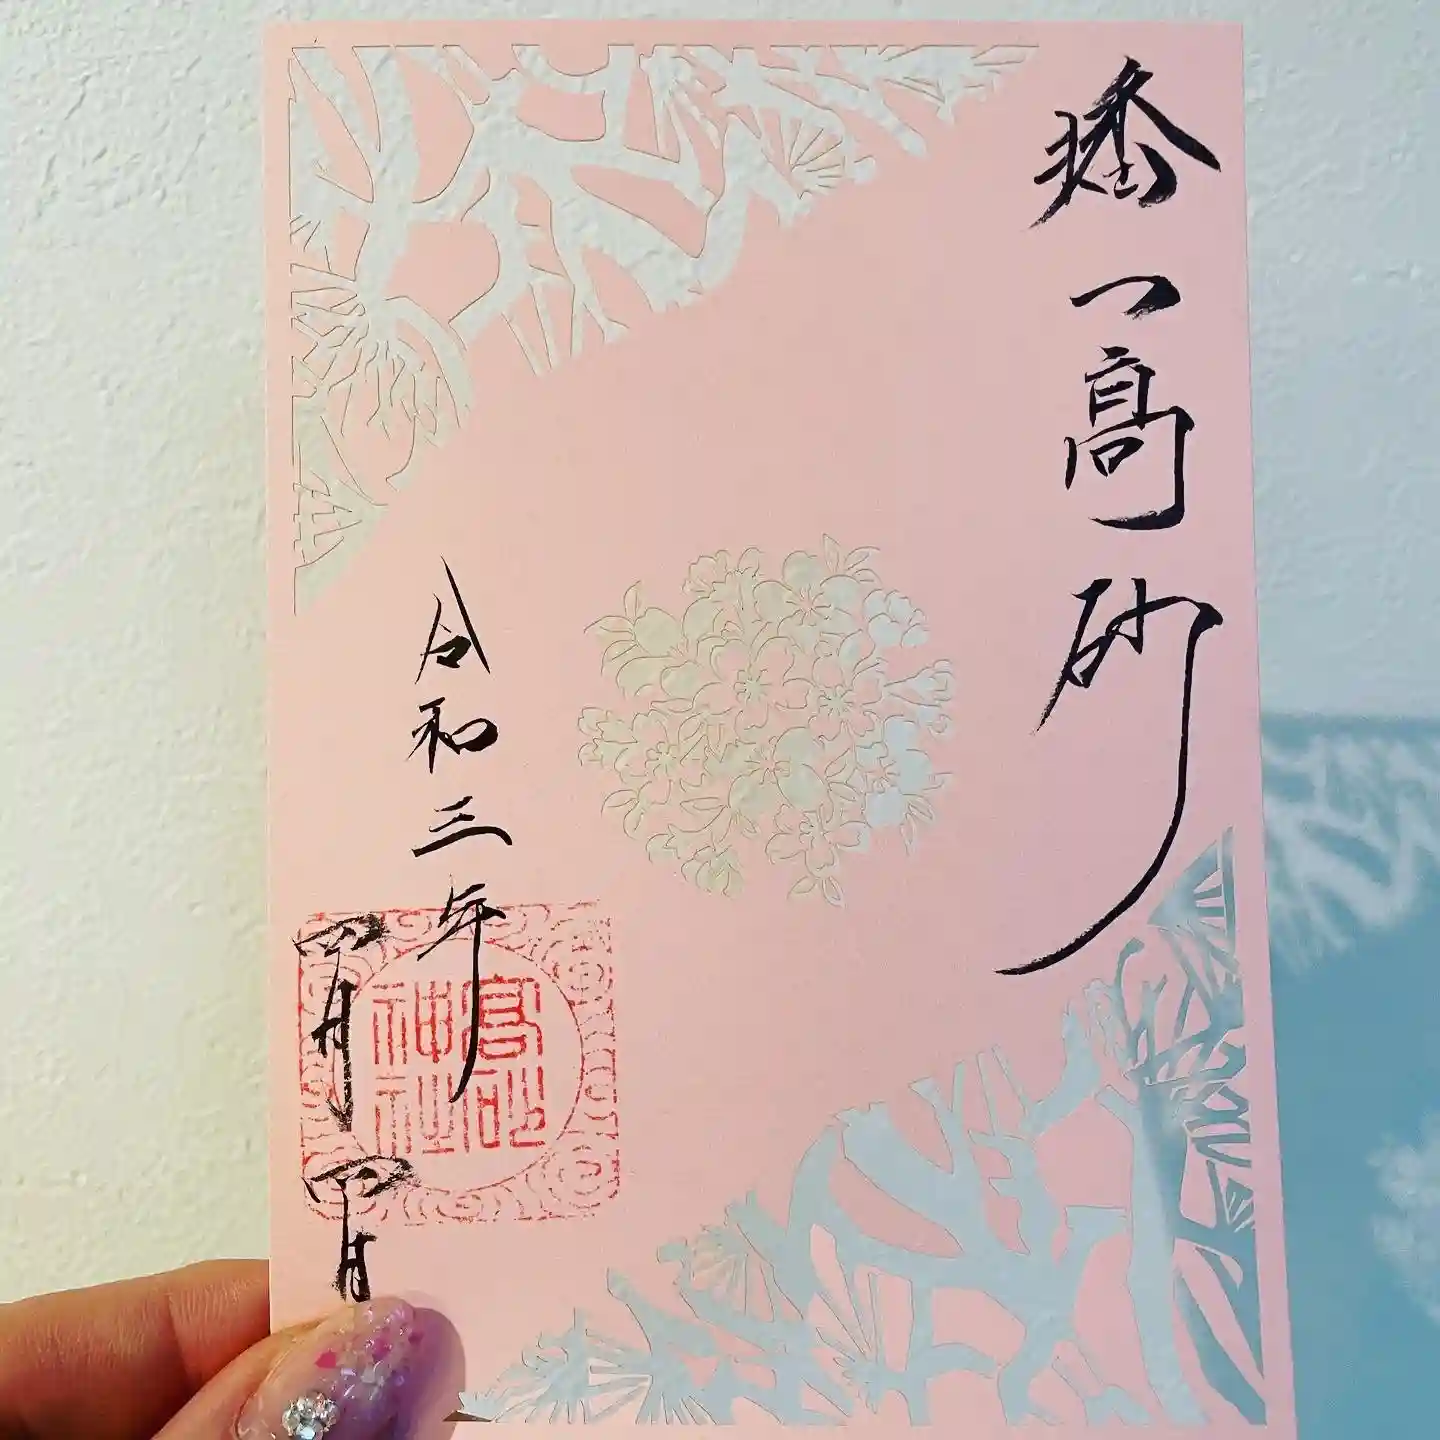 播一高砂
令和三年
四月四日
高砂
神社